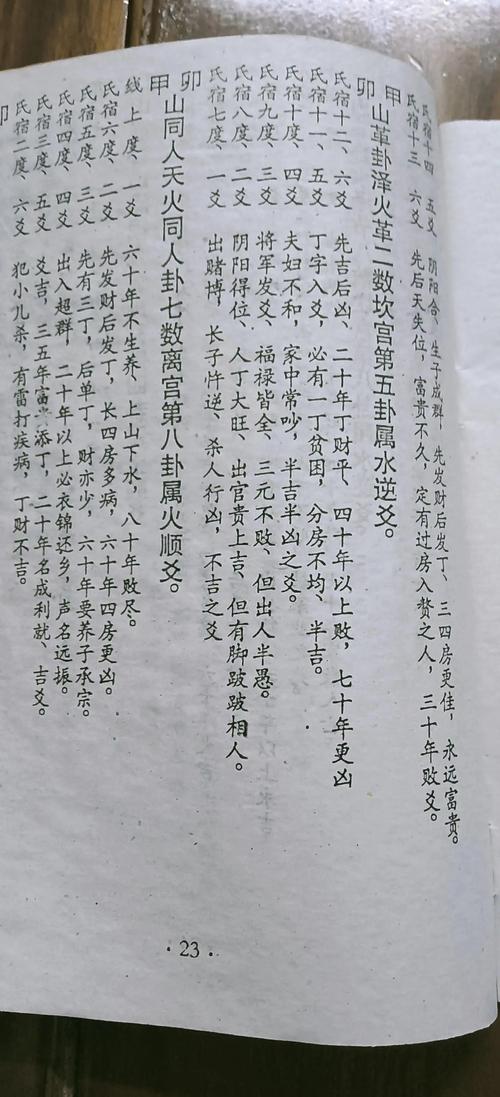 氏宿十四 五爻 阴阳合、生子成群，先发财后发丁、三四房更佳，永远富贵。
氏宿十三 六爻 先后天失位，富贵不久，定有过房入赘之人，三十年败爻。
甲
卯
山革卦泽火革二数坎宫第五卦属水逆爻。
氏宿十二、六爻 先吉后凶、二十年丁财平、四十年以上败，七十年更凶
氏宿十一、五爻 丁字入爻，必有一丁贫困，分房不均、半吉。
氏宿十度、四爻 夫妇不和，家中常吵，半吉半凶之爻。
氏宿九度、三爻 将军发爻、福禄皆全、三元不败、但出人半愚。
氏宿八度、二爻 阴阳得位、人丁大旺、出官贵上吉、但有脚跛跛相人。
氏宿七度、一爻 出赌博，长子忤逆、杀人行凶，不吉之爻
卯
甲
山同人天火同人卦七数离宫第八卦属火顺爻。
线上度、一爻 六十年不生养、上山下水，八十年败尽。
氏宿六度、二爻 先发财后发丁，长四房多病，六十年四房更凶。
氏宿五度、三爻 先有三丁，后单丁，财亦少，六十年要养子承宗。
氏宿四度、四爻 出入超群，二十年以上必衣锦还乡，声名远振。
氏宿三度、五爻 爻吉，三五年富添丁，二十年名成利就、吉爻。
氏宿二度、六爻 犯小儿杀，有雷打疾病，丁财不吉。
卯
·23·